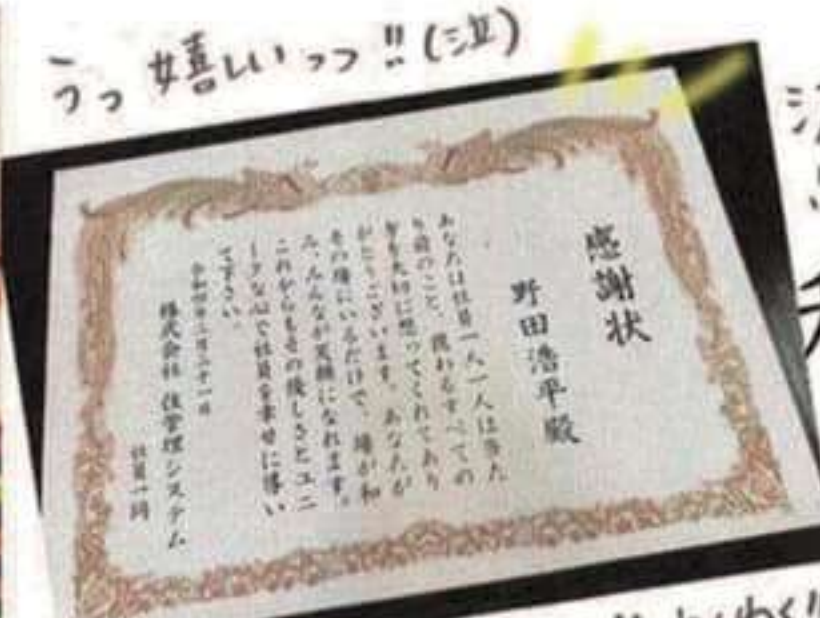 うっ嬉しいっっ!!(泣)
感謝状
野田浩平殿
あなたは社員一人一人は当た
り前のこと、関わるすべての
方を大切に想ってくれてあり
がとうございます。あなたが
その場にいるだけで、場が和
み、みんなが笑顔になれます。
これからもその優しさとユニ
ークな心で社員を幸せに導い
て下さい。
令和四年二月二十一日
株式会社 住管理システム
社員一同